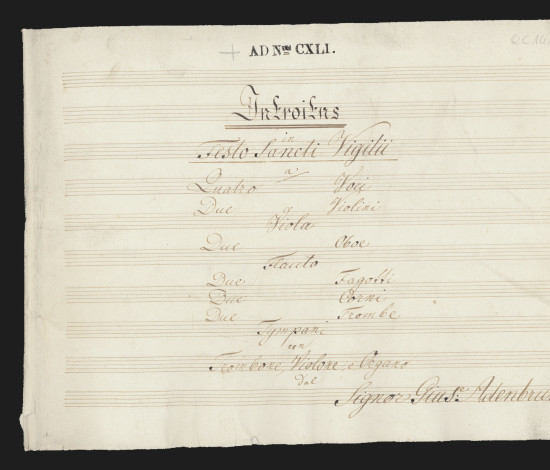 AD Num CXLI.
Introitus
in
Festo Sancti Vigilii
a
Quatro Voci
Due Violini
Viola
Due Oboe
Flauto
Due Fagotti
Due Corni
Due Trombe
Tympani
con
Trombone, Violone, e Organo
dal
Signor Gius: